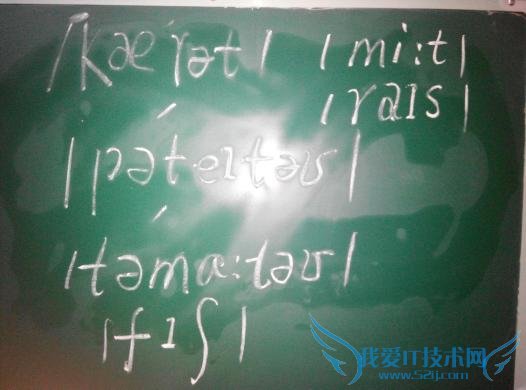 /kæˈrət/ /mi:t/
/raɪs/
/pəˈteɪtəʊ/
/təˈmɑ:təʊ/
/fɪʃ/
我爱IT技术网
www.52ij.com